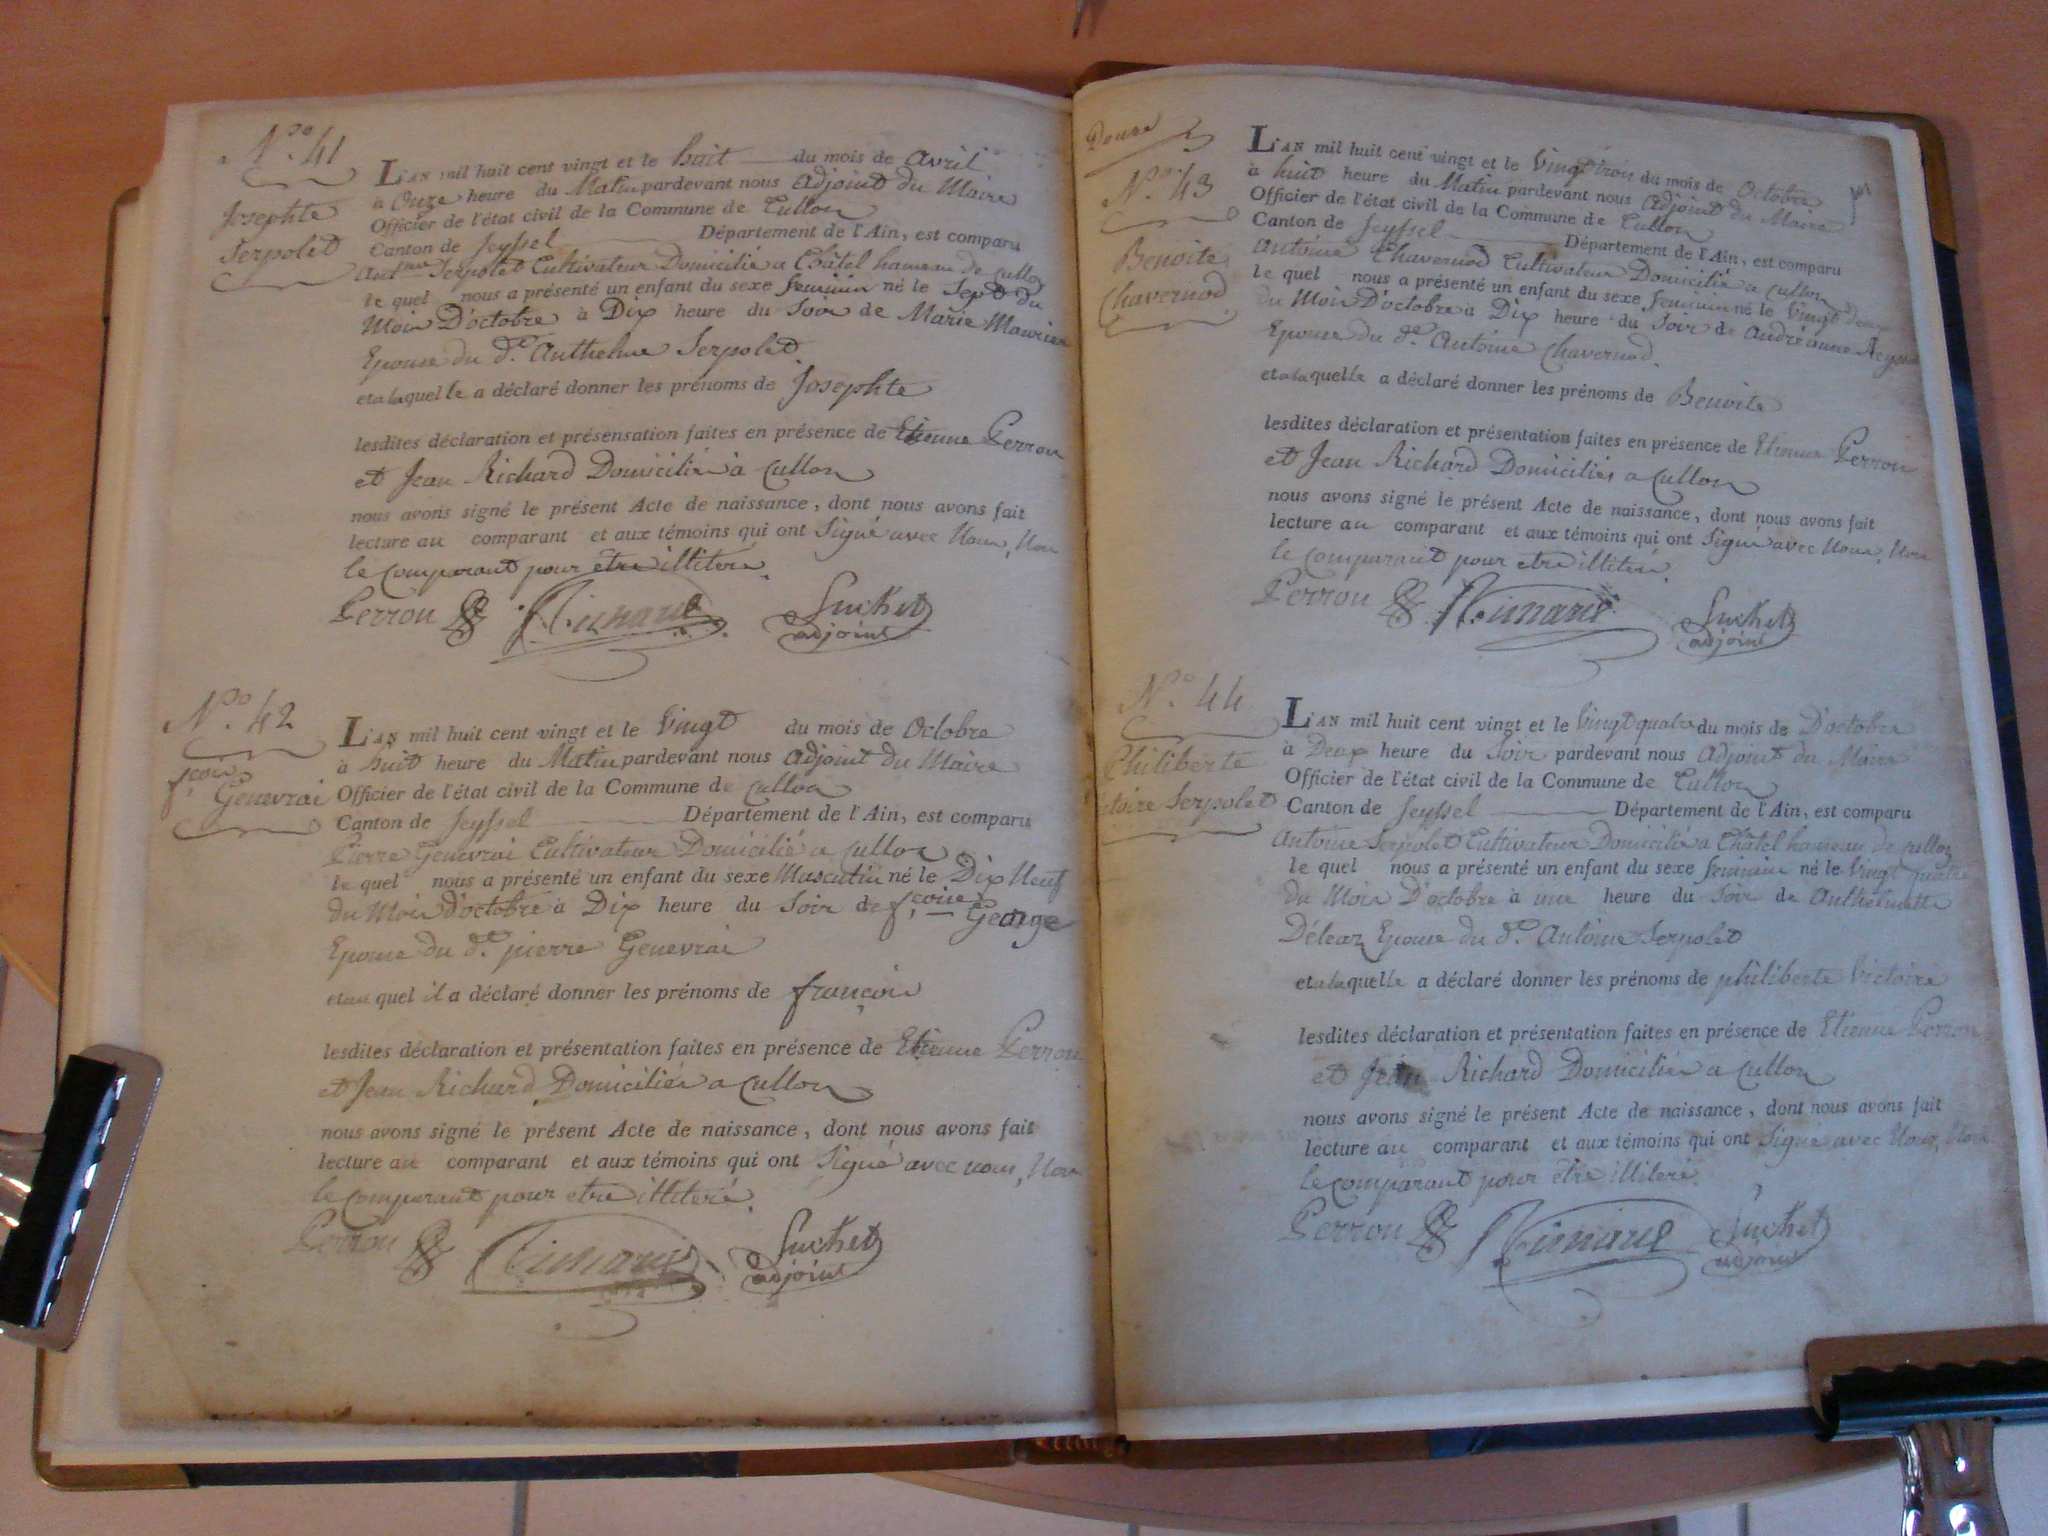 N.º 41
Josephte
Serpolet
L'AN mil huit cent vingt et le huit du mois de avril
à Onze heure du Matin pardevant nous adjoint du Maire
Officier de l'état civil de la Commune de Cullon
Canton de Seyssel Département de l'Ain, est comparu
Anthme Serpolet Cultivateur Domicilié a Châtel hameau de cullon
le quel nous a présenté un enfant du sexe feminin né le Sept du
Mois D'octobre à Dix heure du Soir de Marie
Epouse du d.e Anthelme Serpolet.
et a laquelle a déclaré donner les prénoms de Josephte
lesdites déclaration et présensation faites en présence de Etienne Perron
et Jean Richard Domiciliés à Cullon
nous avons signé le présent Acte de naissance, dont nous avons fait
lecture au comparant et aux témoins qui ont Signé avec Nous, Non
le Comparant pour être illiteré.
Perron Richard Suchet
adjoint
N.º 42
f.çois
Genevrai
L'AN mil huit cent vingt et le Vingt du mois de Octobre
à huit heure du Matin pardevant nous adjoint du Maire
Officier de l'état civil de la Commune de Cullon
Canton de Seyssel Département de l'Ain, est comparu
Pierre Genevrai Cultivateur Domicilié a Cullon
le quel nous a présenté un enfant du sexe Masculin né le Dix Neuf
du Mois d'octobre à Dix heure du Soir de f.çoise George
Epouse du d.e pierre Genevrai
et au quel il a déclaré donner les prénoms de françois
lesdites déclaration et présentation faites en présence de Etienne Perron
et Jean Richard Domiciliés a Cullon
nous avons signé le présent Acte de naissance, dont nous avons fait
lecture au comparant et aux témoins qui ont Signé avec nous, Non
le Comparant pour etre illiteré.
Perron Richard Suchet
adjoint
Douze
N.º 43
Benoite
Chavernod
L'AN mil huit cent vingt et le Vingt trois du mois de Octobre
à huit heure du Matin pardevant nous adjoint du Maire
Officier de l'état civil de la Commune de Cullon
Canton de Seyssel Département de l'Ain, est comparu
Antoine Chavernod Cultivateur Domicilié a Cullon
le quel nous a présenté un enfant du sexe feminin né le Vingt Deux
du Mois D'octobre à Dix heure du Soir de Andréanne
Epouse du d.e Antoine Chavernod.
et a laquelle a déclaré donner les prénoms de Benoite
lesdites déclaration et présentation faites en présence de Etienne Perron
et Jean Richard Domiciliés a Cullon
nous avons signé le présent Acte de naissance, dont nous avons fait
lecture au comparant et aux témoins qui ont Signé avec Nous, Non
le Comparant pour etre illiteré.
Perron Richard Suchet
adjoint
N.º 44
Philiberte
toire Serpolet
L'AN mil huit cent vingt et le Vingt quatre du mois de D'octobre
à Deux heure du Soir pardevant nous adjoint du Maire
Officier de l'état civil de la Commune de Cullon
Canton de Seyssel Département de l'Ain, est comparu
Antoine Serpolet Cultivateur Domicilié a Châtel hameau de cullon
le quel nous a présenté un enfant du sexe feminin né le Vingt quatre
du Mois D'octobre à une heure du Soir de Anthelmette
Déléaz Epouse du d.e Antoine Serpolet
et a laquelle a déclaré donner les prénoms de philiberte Victoire
lesdites déclaration et présentation faites en présence de Etienne Perron
et Jean Richard Domiciliés a Cullon
nous avons signé le présent Acte de naissance, dont nous avons fait
lecture au comparant et aux témoins qui ont Signé avec Nous, Non
le comparant pour être illiteré.
Perron Richard Suchet
adjoint